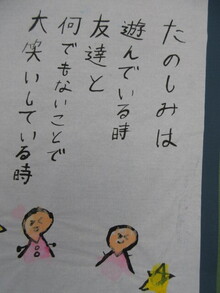 たのしみは
遊んでいる時
友達と
何でもないことで
大笑いしている時